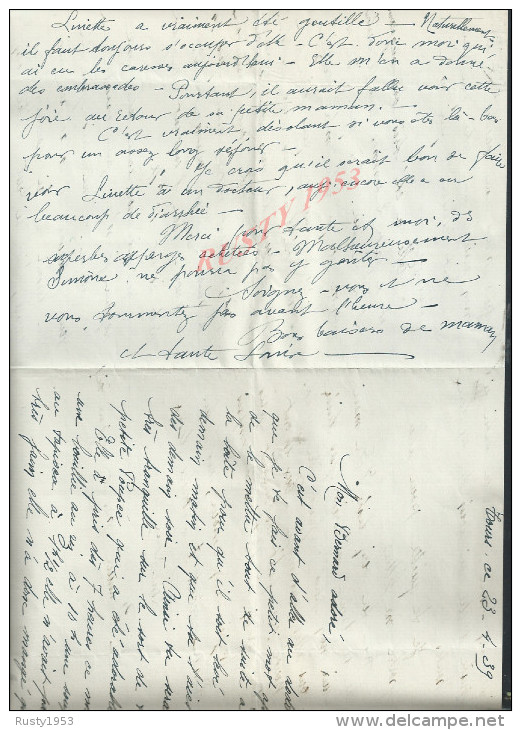 Linette a vraiment été gentille — Naturellement
il faut toujours s'occuper d'elle - C'est donc moi qui
ai eu les caresses aujourd'hui - Elle m'en a donné
des embrassades - Pourtant, il aurait fallu voir cette
joie au retour de sa petite maman. -
C'est vraiment désolant si vous êtes là-bas
pour un assez long séjour -
Je crois qu'il serait bon de faire
voir Linette à un docteur, aujourd'hui encore elle a eu
beaucoup de diarrhée -
Merci pour tante et moi, des
superbes asperges achetées - Malheureusement
Simone ne pourra pas y goûter -
Soignez-vous et ne
vous tourmentez pas avant l'heure -
Bons baisers de maman
et tante
RUSTY 1953
Tours ce 23-4-39
Mon Bernard adoré,
C'est avant d'aller au
que je te fais ce petit mot
de le mettre tout de suite à
la boîte pour qu'il soit
demain matin et que tu
dès demain soir - Ainsi tu seras
très tranquille sur le sort de
petite Poupée qui a été adorable
Elle a pris dès 7 heures ce
une bouillie au riz à 10 h une
au tapioca à 1h 1/2 elle n'avait pas
très faim, elle n'a donc mangé
Rusty1953